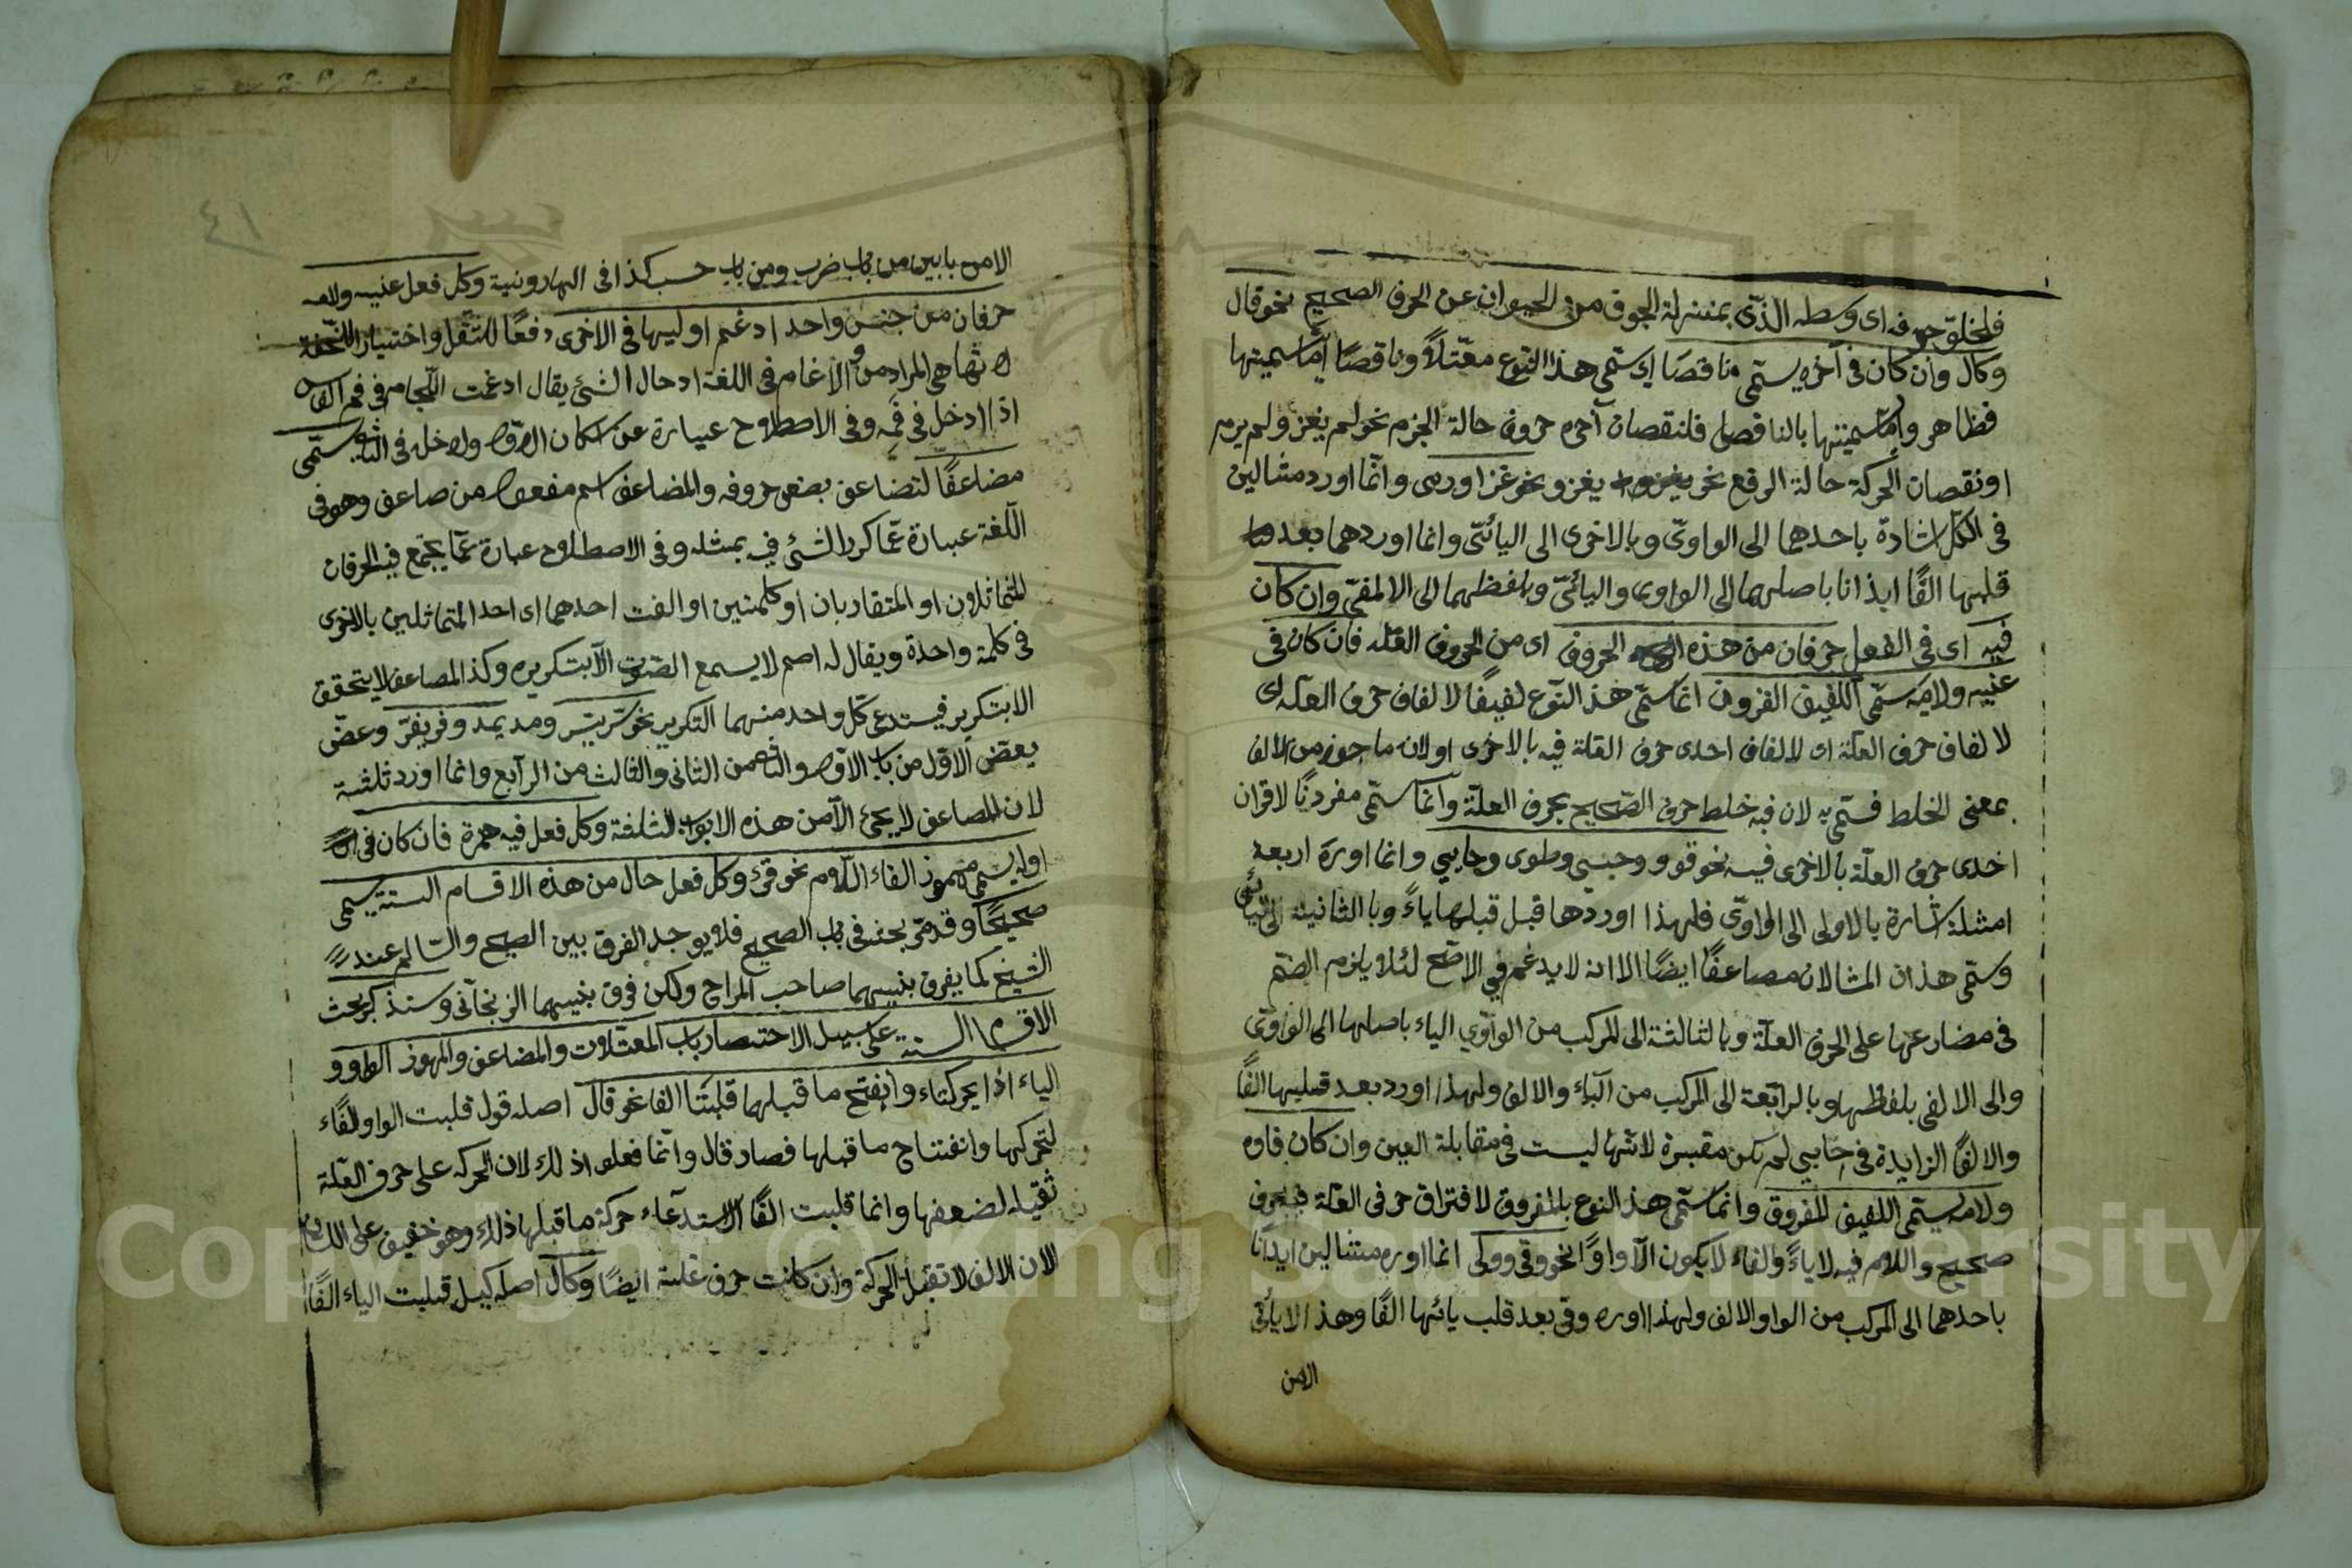 فلخلوّ جوفه اى وسطه الذّى بمنزلة الجوف من الحيوان عن الحرف الصحيح نحو قال
وكال وان كان فى آخره يستمّى ناقصًا اى ستمّى هذا النوع معتلاً وناقصًا امّا تسميتها
فظاهر وامّا تسميتها بالناقص فلنقصان آخره حروف حالة الجزم نحو لم يغز ولم يرم
او نقصان الحركة حالة الرفع نحو يغزو نحو غزا ورمى وانّما اورد مثالين
فى الكلّ اشارة باحدهما الى الواوىّ وبالاخرى الى اليائىّ وانما اوردهما بعد
قلبها الفًا ايذانا باصلهما الى الواوى واليائىّ وبلفظهما الى الالفىّ وان كان
فيه اى فى الفعل حرفان من هذه الحروف اى من الحروف العلة فان كان فى
عنيه ولامه يسمّى اللفيف المقرون انما ستمّى هذ النّوع لفيفًا لالفاف حرف العلّة اى
لالفاف حرف العلّة اى لالفاف احدى حرف العلة فيه بالاخرى او لانه ماجوز من الالف
بمعنى الخلط فسمّى به لان فيه خلط حرف الصّحيح بحرف العلّة وانّما ستمّى مقرونًا لاقران
احدى حرف العلّة بالاخرى فيه نحو قوو وحيى وطوى وحايي وانما اورد اربعة
امثلة اشارة بالاولى الى الواوىّ فلهذا اوردها قبل قبلها ياءً وبالثانية الى اليائى
وستمّى هذان المثالان مصاعفًا ايضًا الا انه لا يدغم فى الاصّح لئلا يلزم الضّم
فى مضارعها على الحرف العلّة وبالثالثة الى المركب من الواوّي الياء باصلها الى الواوىّ
والى الالفى بلفظها وبالرابّعة الى المركب من الباء والالف ولهذا اورد بعد قبلها الفًا
والالفُ الزايدة فى حايي لم تكن مقبرة لانّها ليست فى مقابلة العين وان كان فاوه
ولامه يستمّى اللفيف المفروق وانما ستمّى هذ النوع بالمفروق لافتراق حرفى العلّة بحرف
صحيح واللام فيه لا ياءً والفاء لا يكون الآ واوًا نحو وقى ووكى انما اوره مثالين ايذانًا
باحدهما الى المركب من الواو والالف ولهذا اوره وقى بعد قلب يائها الفًا وهذ الا يأتى
الامن
٤١
الامن بابين من باب ضرب ومن باب حسب كذا فى الهارونية وكل فعل عنيه ولامه
حرفان من جنس واحد ادغم اوليها فى الاخرى دفعًا للثّقل واختيار اللخفة
لانها هى المراد من والادغام فى اللغة ادحال الشئ يقال ادغمت اللّجام فى فم الفرس
اذا ادخل فى فمه وفى الاصطلاح عبيارة عن اسكان الاول وادخله فى الثانى ويستمّى
مضاعفًا لتضاعف بعض حروفه والمضاعف اسم مفعول من ضاعف وهو فى
اللّغة عبارة عمّا كرد الشئ فيه بمثله وفى الاصطلاح عبارة عمّا يجتمع فيه الحرفان
المتماثلان او المتقاربان او كلمتين او الفت احدهما اى احد المتماثلين بالاخرى
فى كلمة واحدة ويقال له اصم لا يسمع الصّوت الاّ بتكريره وكذ المصاعف لا يتحقق
الا بتكرير فيستدعى كلّ واحد منهما التكرير نحو سرّ يسرّ ومد يمد وفر يفرّ وعضّ
يعضّ الاول من باب الاول والثانى من الثانى والثالث من الرابع وانما اورد ثلثة
لان المصاعف لا يجئ الاّ من هذه الابواب الثلثة وكل فعل فيه همزة فان كان فى
اوله يسمى مهموز الفاء اللّام نحو قرئ وكل فعل حال من هذه الاقسام الستة يسمى
صحيحًا وقد مّر بحثه فى باب الصحيح فلا يوجد الفرق بين الصحيح والسّالم عند
الشيخ كما يفرق بنيهما صاحب المراح ولكن فرق بنيهما الزنجانى وسنذ كر بحث
الاقسام الستة على سبيل الاختصار باب المعتلات والمضاعف والمهموز الواو و
الياء اذا تحركتاء وانفتح ما قبلهما قلبتا الفا نحو قال اصله قول قلبت الواو الفًاء
لتحركها وانفتاح ما قبلها فصار قال وانّما فعلوا ذلك لان الحركه على حرف العلّة
ثقيله لضعفها وانما قلبت الفًا لاستدعاء حركة ما قبلها ذلك وهو خفيف على اللسان
لان الالف لا تقبل الحركة وان كانت حرف علة ايضًا وكال اصله كيل قبلبت الياء الفًا